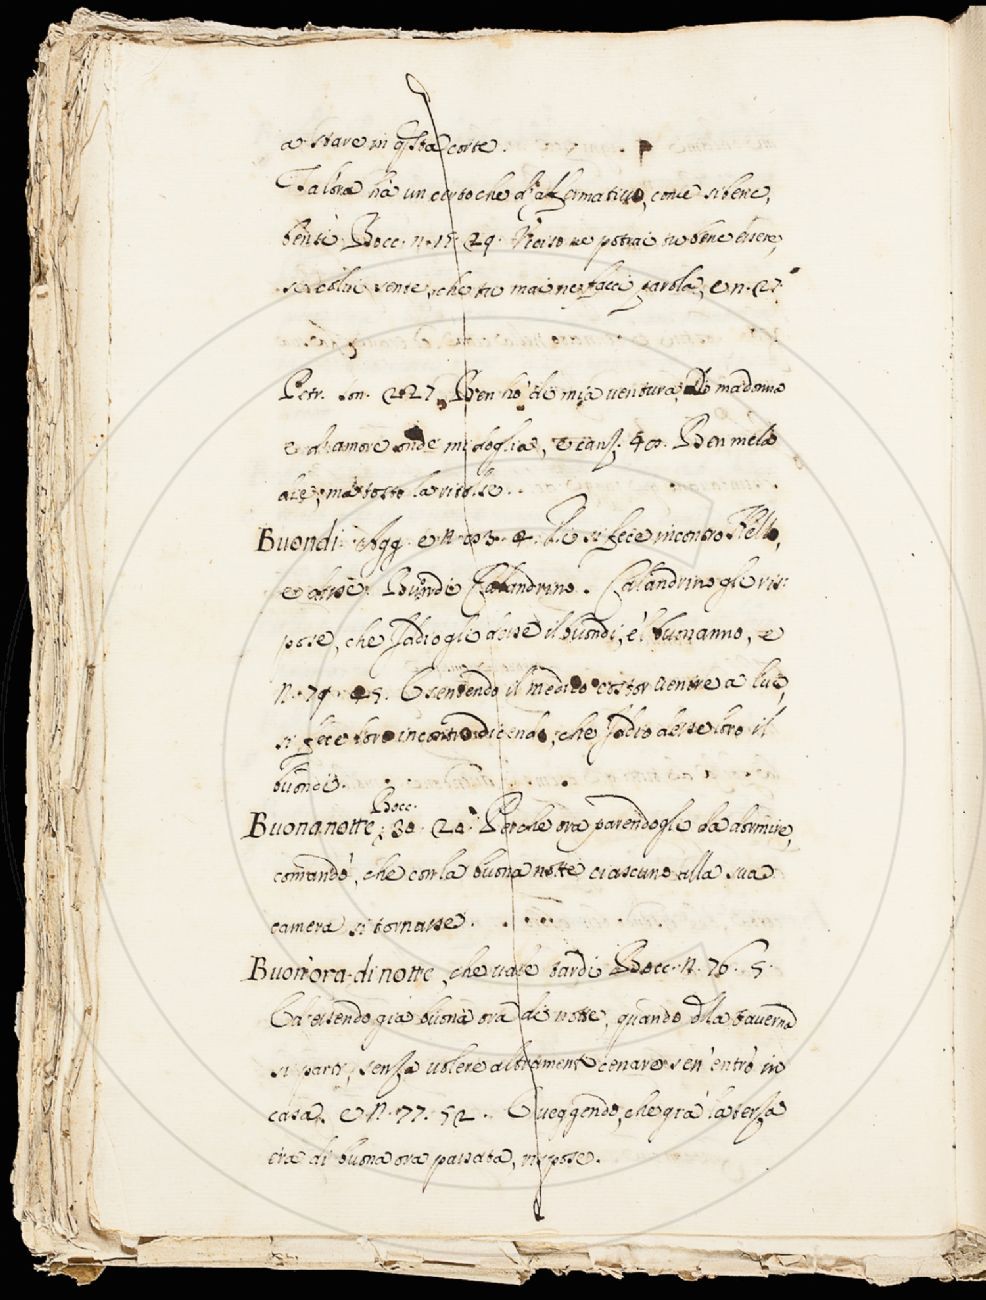 a stare in q̃sta corte.
Talora ha un certo che d'affermativo, come si bene,
ben sè. Bocc. n. 15. 29. Sicuro ne potrai tu bene essere,
se colui sente, che tu mai ne facci parola, e n. 27
Petr. son. 227. Ben hò di mia ventura, di madonna
e d'amore onde mi doglia, e canz. 40. Ben me la
die, ma tosto la ritolse.
Buondi. Agg. e n. 83. 4. Le si fece incontro Nello,
e disse. Buondì Calandrino. Calandrino gli ris:
pose, che Iddio gli desse il buondi, e'l buon anno, e
n. 79. 45. Veggendo il medico costor venire a lui,
si fece loro incontro dicendo, che Iddio desse loro il
buondi.
Buona notte, Bocc. 30. 20. Perche ora parendogli da dormire,
comandò, che con la buona notte ciascuno alla sua
camera si tornasse.
Buon'ora di notte, che vale tardi Bocc. n. 76. 5.
Ed essendo già buona ora di notte, quando dlla taverna
si partì, senza volere altramente cenare sen'entrò in
casa. e n. 77. 52. Veggendo, che già la terza
era di buona ora passata, rispose.